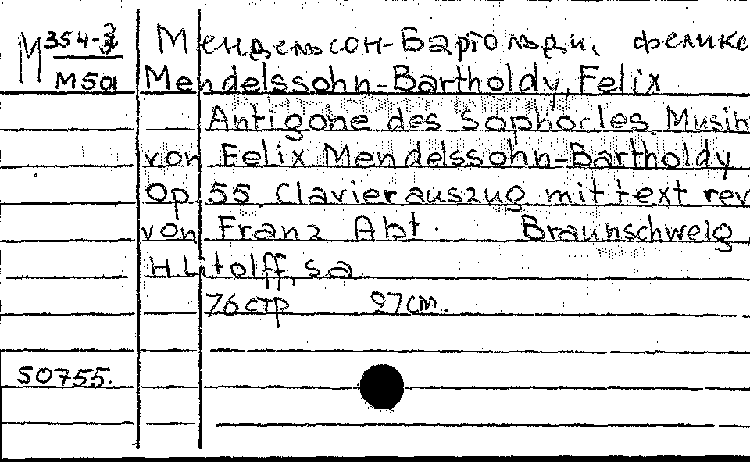 М 354-3
М50
Мендельсон-Бартольди, Феликс
Mendelssohn-Bartholdy, Felix
Antigone des Sophocles Musik
von Felix Mendelssohn-Bartholdy
Op 55 Clavierauszug mit text rev
von Franz Abt. Braunschweig
H Litolff, s a
76 стр 27см.
50755.